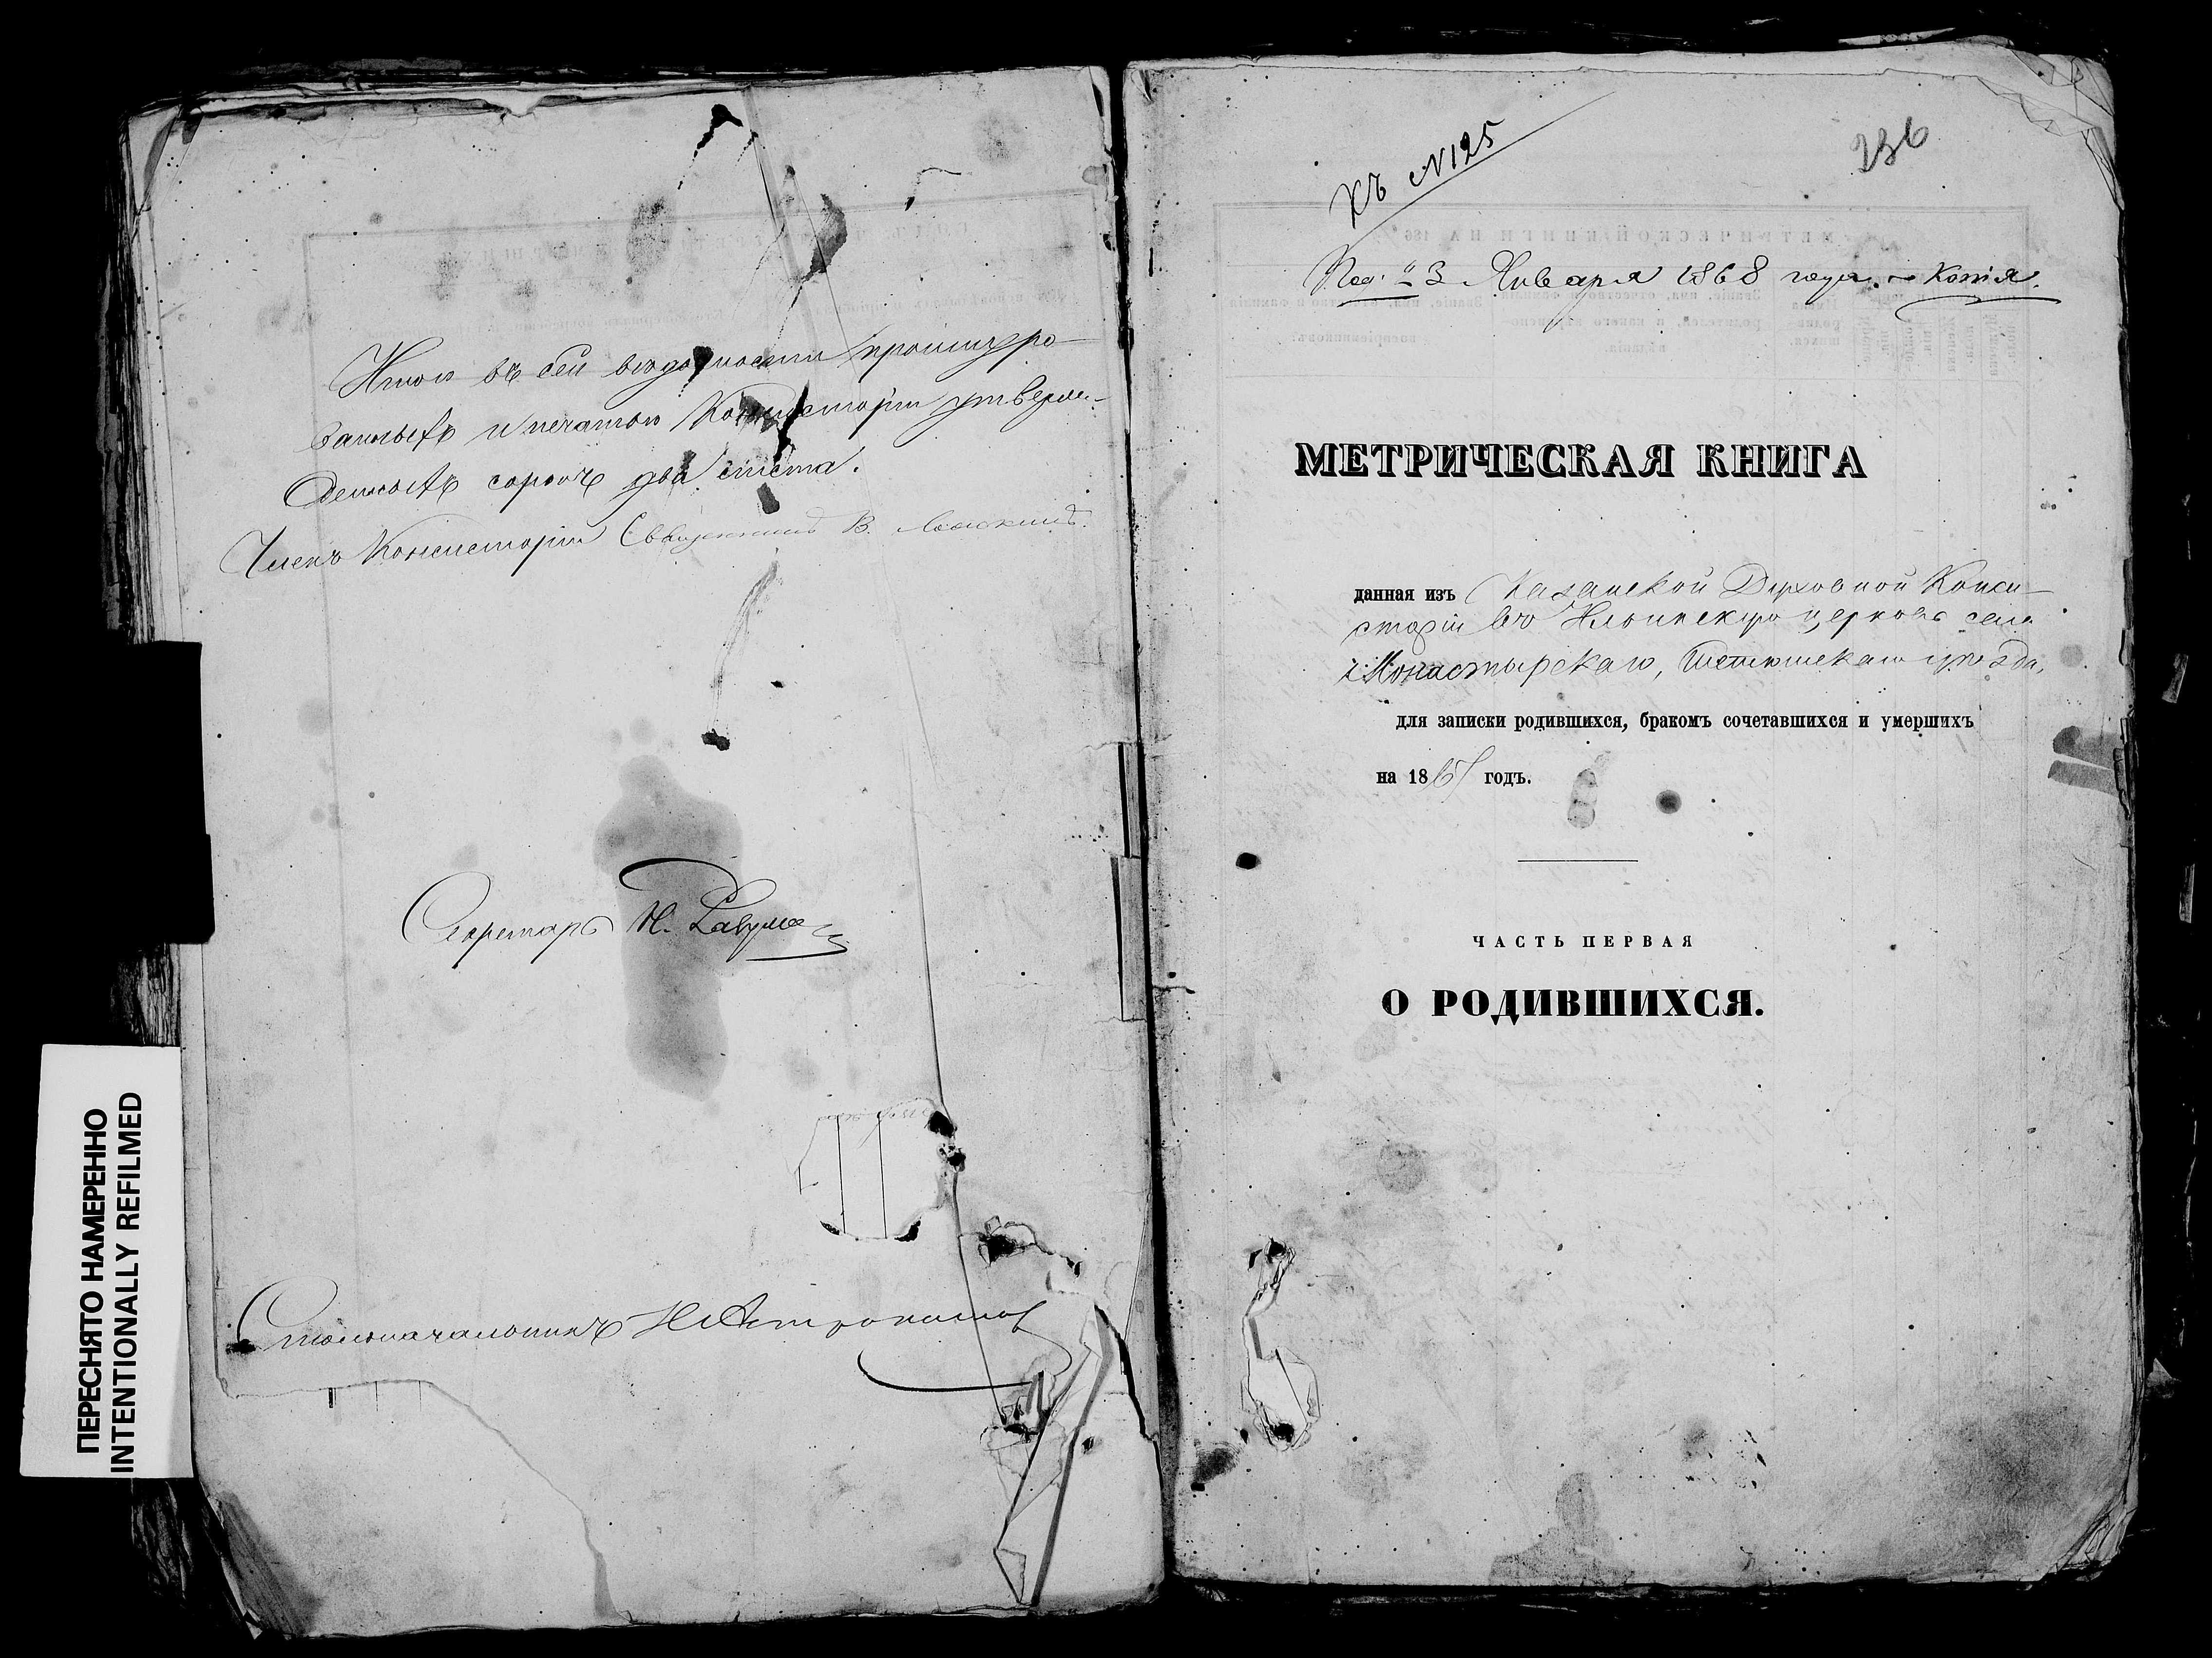 Итого въ сей вѣдомости прошнуро-
ванныхъ и печатью Консисторіи утверж-
денныхъ сорокъ два листа.
Членъ Консисторіи Священникъ В.
Секретарь Н.
Столоначальникъ
ПЕРЕСНЯТО НАМЕРЕННО
INTENTIONALLY REFILMED
236
Къ №125
3 Января 1868 года. – Копія.
МЕТРИЧЕСКАЯ КНИГА
данная изъ Казанской Духовной Конси-
сторіи въ Ильинскую церковь села
Монастырскаго, Тетюшскаго уѣзда,
для записки родившихся, бракомъ сочетавшихся и умершихъ
на 1867 годъ.
ЧАСТЬ ПЕРВАЯ
О РОДИВШИХСЯ.